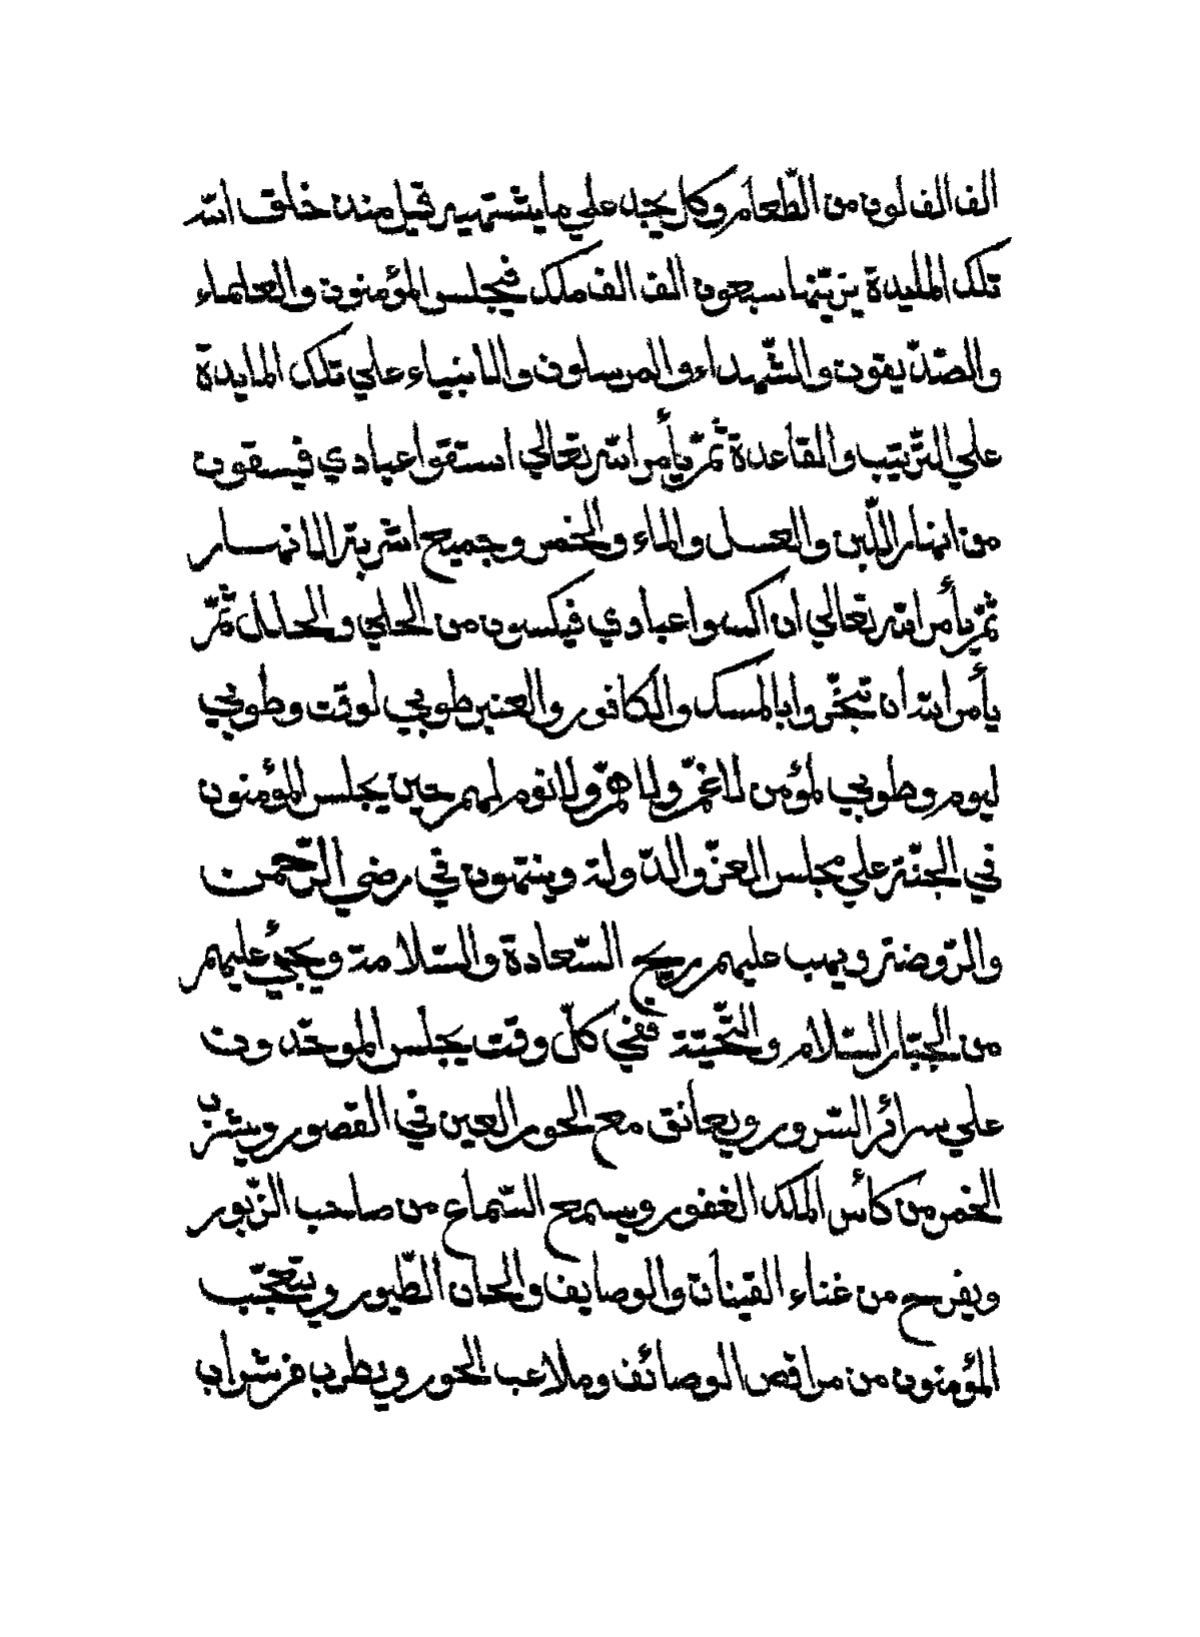 الف الف لون من الطّعام وكل يجد علي ما يشتهيه قيل منذ خلق الله
تلك المايدة يزيّنها سبعون الف الف ملك فيجلس المؤمنون والعلماء
والصّدّيقون والشّهداء والمرسلون والانبياء علي تلك المايدة
علي التّرتيب والقاعدة ثمّ يأمر الله تعالي استقوا عبادي فيسقون
من انهار اللّبن والعسل والماء والخمر وجميع اشربة الانهار
ثمّ يأمر الله تعالي ان اكسوا عبادي فيكسون من الحلي والحلل ثمّ
يأمر الله ان تبخّروا بالمسك والكافور والعنبر طوبي لوقت وطوبي
ليوم وطوبي لمؤمن لا غمّ ولا همّ ولا نوم لهم حين يجلس المؤمنون
في الجنّة علي مجلس العزّ والدّولة وينتهون في رضي الرّحمن
والرّوضة ويهب عليهم ريح السّعادة والسّلامة ويجيئ عليهم
من الجبّار السّلام والتّحيّة ففي كلّ وقت يجلس الموحّدون
علي سرائر السّرور ويعانق مع الحور العين في القصور ويشرب
الخمر من كأس الملك الغفور ويسمع السّماع من صاحب الزّبور
ويفرح من غناء القينات والوصايف والحان الطّيور ويتعجّب
المؤمنون من مراقص الوصائف وملاعب الحور ويطرب فز شراب